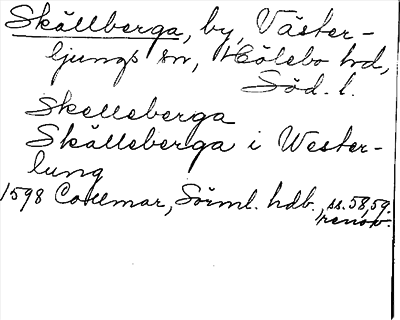 Skällberga, by, Väster-
ljungs sn, Hölebo hd,
Söd. l.
Skelleberga
Skälleberga i Wester-
lung
1598 Collmar, Sörml. hdb., ss. 58, 59.
renov.